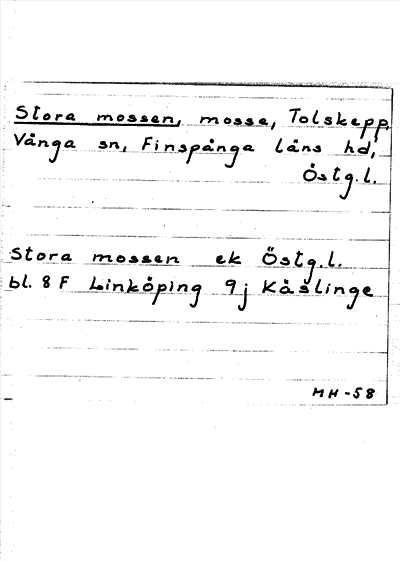 Stora mossen, mosse, Tolskepp,
Vånga sn, Finspånga läns hd,
Östg.l.
Stora mossen ek Östg.l.
bl. 8 F Linköping 9j Kåslinge
MH-58